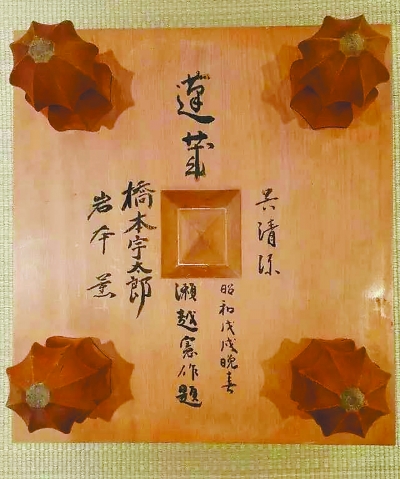 蓬莱
呉清源
昭和戊戌晩春
瀬越憲作題
橋本宇太郎
岩本薫